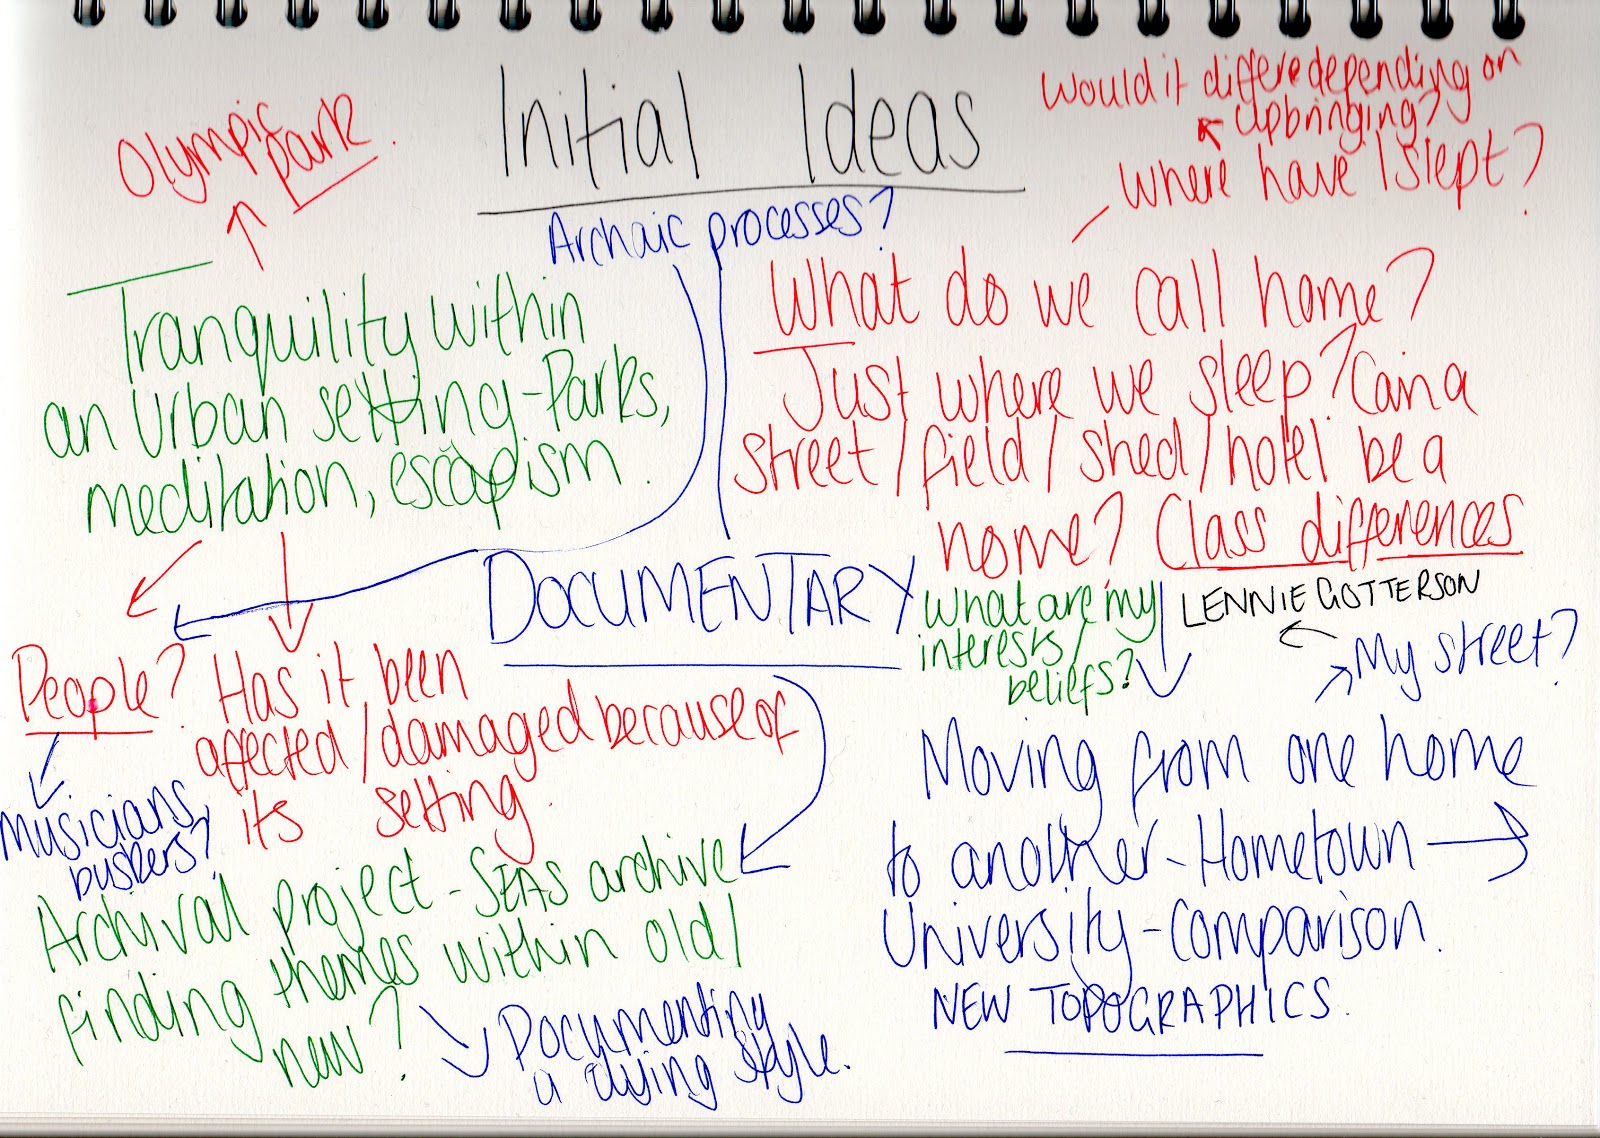 Initial Ideas
Archaic processes?
Olympic
park.
Tranquility within
an Urban setting-Parks,
meditation, escapism.
People?
Musicians,
buskers?
Has it been
affected/damaged because of
its setting.
DOCUMENTARY
Archival project - SEAS archive
finding themes within old/
new?
Documenting
a dying style.
Would it differe depending on
upbringing?
Where have I slept?
What do we call home?
Just where we sleep? Can a
street/field/shed/hotel be a
home? Class differences
What are my
interests/
beliefs?
LENNIE GOTTERSON
My street?
Moving from one home
to another-Hometown
University-Comparison.
NEW TOPOGRAPHICS.